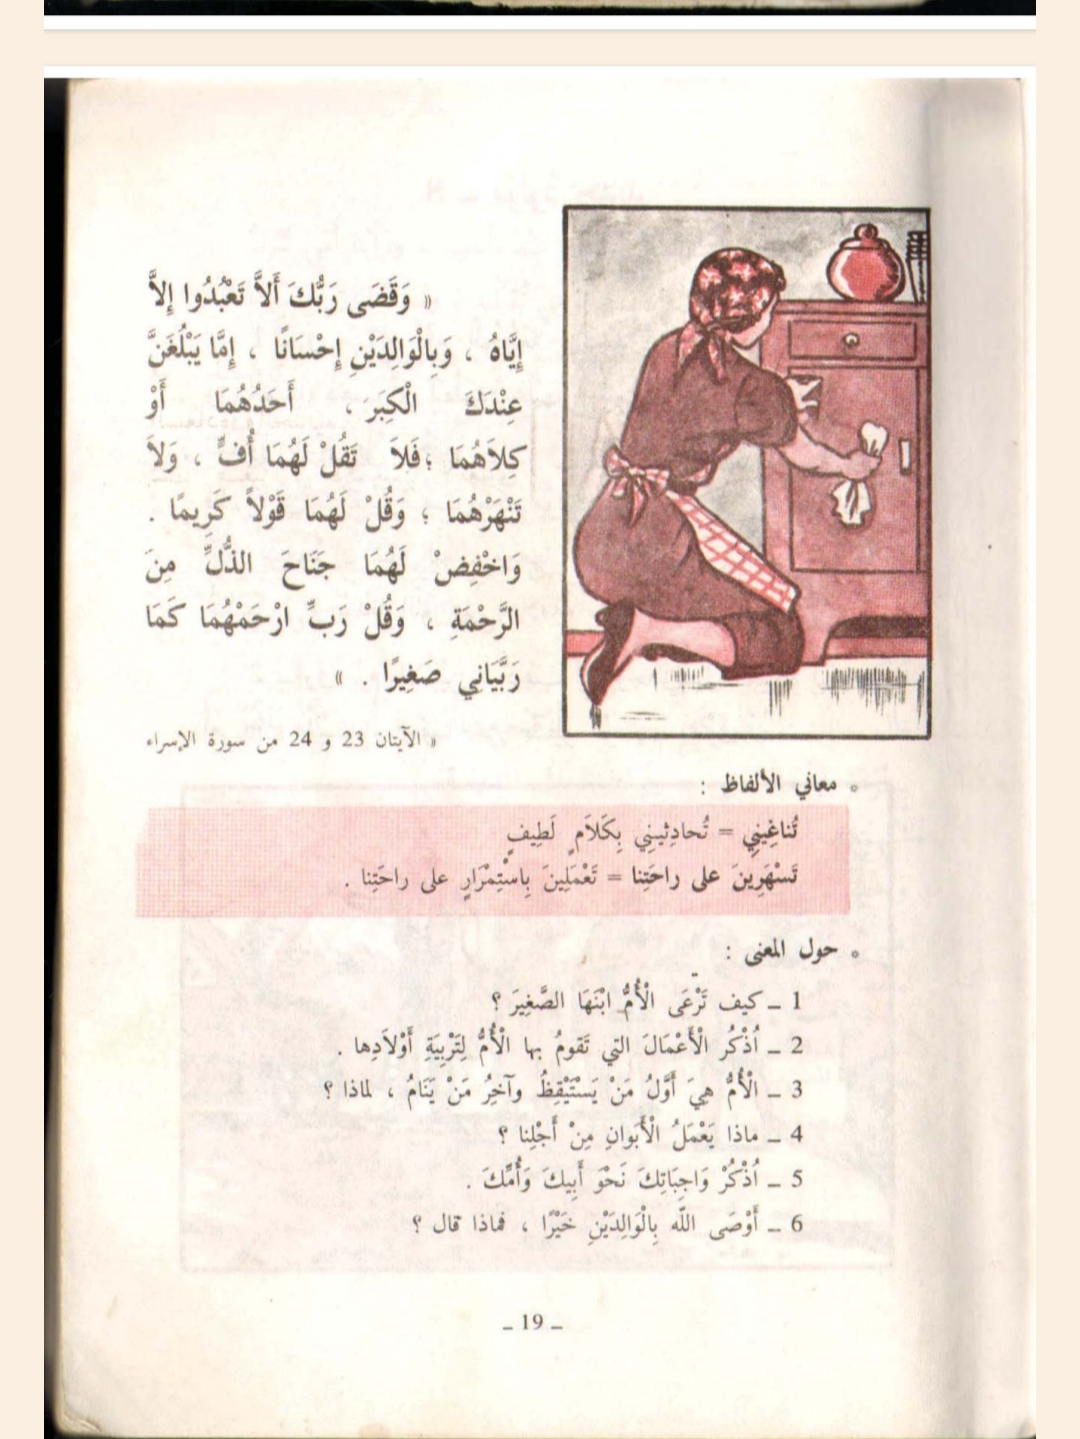 « وَقَضَى رَبُّكَ أَلاَّ تَعْبُدُوا إِلاَّ
إِيَّاهُ ، وَبِالْوَالِدَيْنِ إِحْسَانًا ، إِمَّا يَبْلُغَنَّ
عِنْدَكَ الْكِبَرَ ، أَحَدُهُمَا أَوْ
كِلاَهُمَا ؛ فَلاَ تَقُلْ لَهُمَا أُفٍّ ، وَلاَ
تَنْهَرْهُمَا ؛ وَقُلْ لَهُمَا قَوْلاً كَرِيمًا .
وَاخْفِضْ لَهُمَا جَنَاحَ الذُّلِّ مِنَ
الرَّحْمَةِ ، وَقُلْ رَبِّ ارْحَمْهُمَا كَمَا
رَبَّيَانِي صَغِيرًا . »
« الآيتان 23 و 24 من سورة الإسراء
معاني الألفاظ :
تُناغِينِي = تُحادِثِينِي بِكَلاَمٍ لَطِيفٍ
تَسْهَرِينَ على راحَتِنا = تَعْمَلِينَ بِاسْتِمْرَارٍ على راحَتِنا .
حول المعنى :
1 ــ كيف تَرْعَى الْأُمُّ ابْنَهَا الصَّغِيرَ ؟
2 ــ اُذْكُر الْأَعْمَالَ التي تَقومُ بها الْأُمُّ لِتَرْبِيَةِ أَوْلاَدِها .
3 ــ الْأُمُّ هِيَ أَوَّلُ مَنْ يَسْتَيْقِظُ وآخِرُ مَنْ يَنَامُ ، لماذا ؟
4 ــ ماذا يَعْمَلُ الْأَبَوانِ مِنْ أَجْلِنا ؟
5 ــ اُذْكُرْ وَاجِبَاتِكَ نَحْوَ أَبِيكَ وَأُمِّكَ .
6 ــ أَوْصَى اللّه بِالْوَالِدَيْنِ خَيْرًا ، فماذا قال ؟
ــ 19 ــ